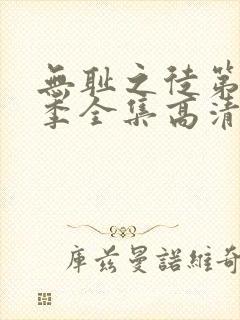 無耻之徒第
季全集高清
库兹曼諾維奇